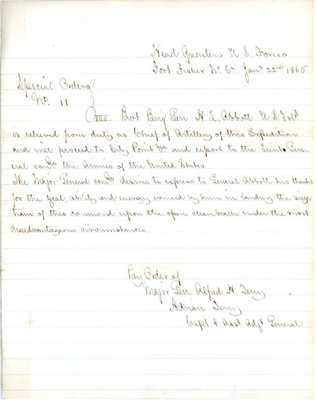 Head Quarters U. S. Forces
Fort Fisher N. Ca Jany 22nd 1865
Special Orders
No. 11
Bvt Brig Gen H. L. Abbott U S Vols
is relieved from duty as Chief of Artillery of this Expedition
and will proceed to City Point Va and report to the Lieut. Gen-
eral comdg the Armies of the United States
The Major General comdg desires to express to General Abbott his thanks
for the zeal, ability and energy evinced by him in landing the
trains of this command upon the open ocean beach under the most
disadvantageous circumstances.
By Order of
Major Gen Alfred H. Terry
Adrian Terry
Capt & Asst Adjt General